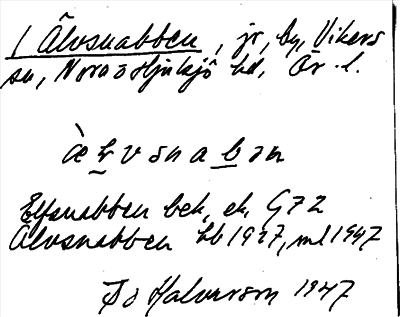 1 Älvsnabben, jr, by, Vikers
sn, Nora o Hjulsjö hd, Ör. l.
Elfsnabben bek, ek, G72
Älvsnabben hb 1927, ml 1947
Halvarson 1947